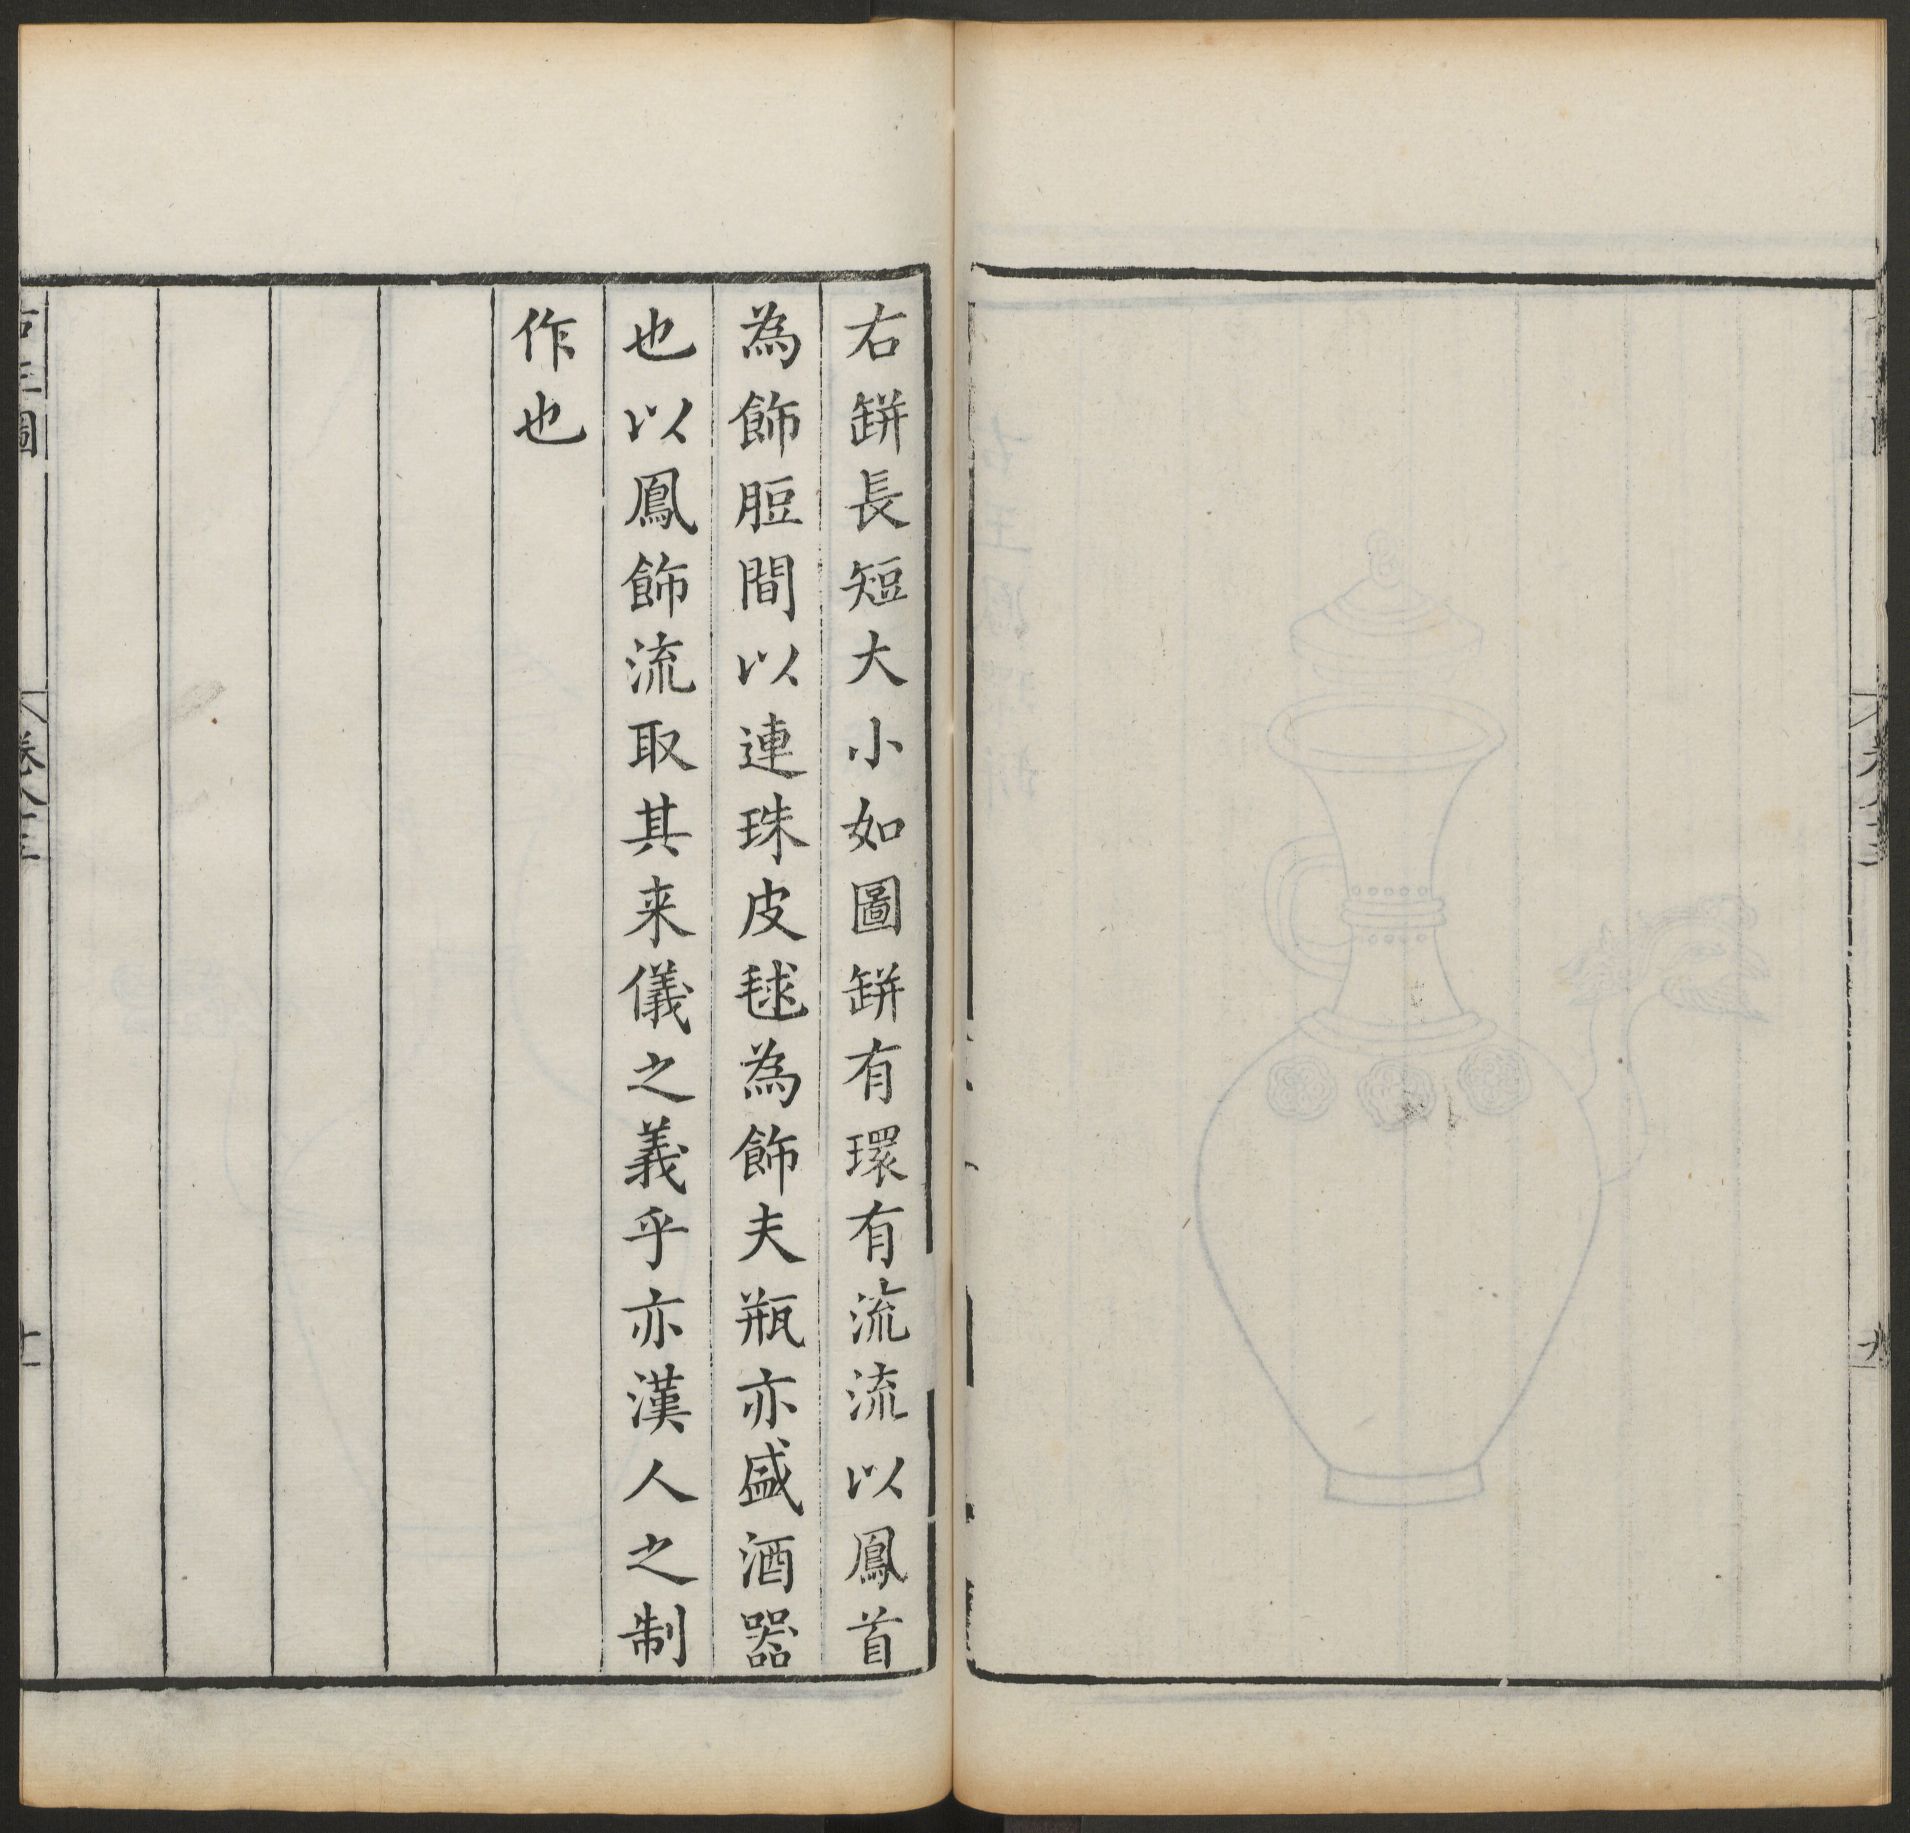 右缾長短大小如圖缾有環有流流以鳳首
為飾脰間以連珠皮毬為飾夫瓶亦盛酒器
也以鳳飾流取其来儀之義乎亦漢人之制
作也